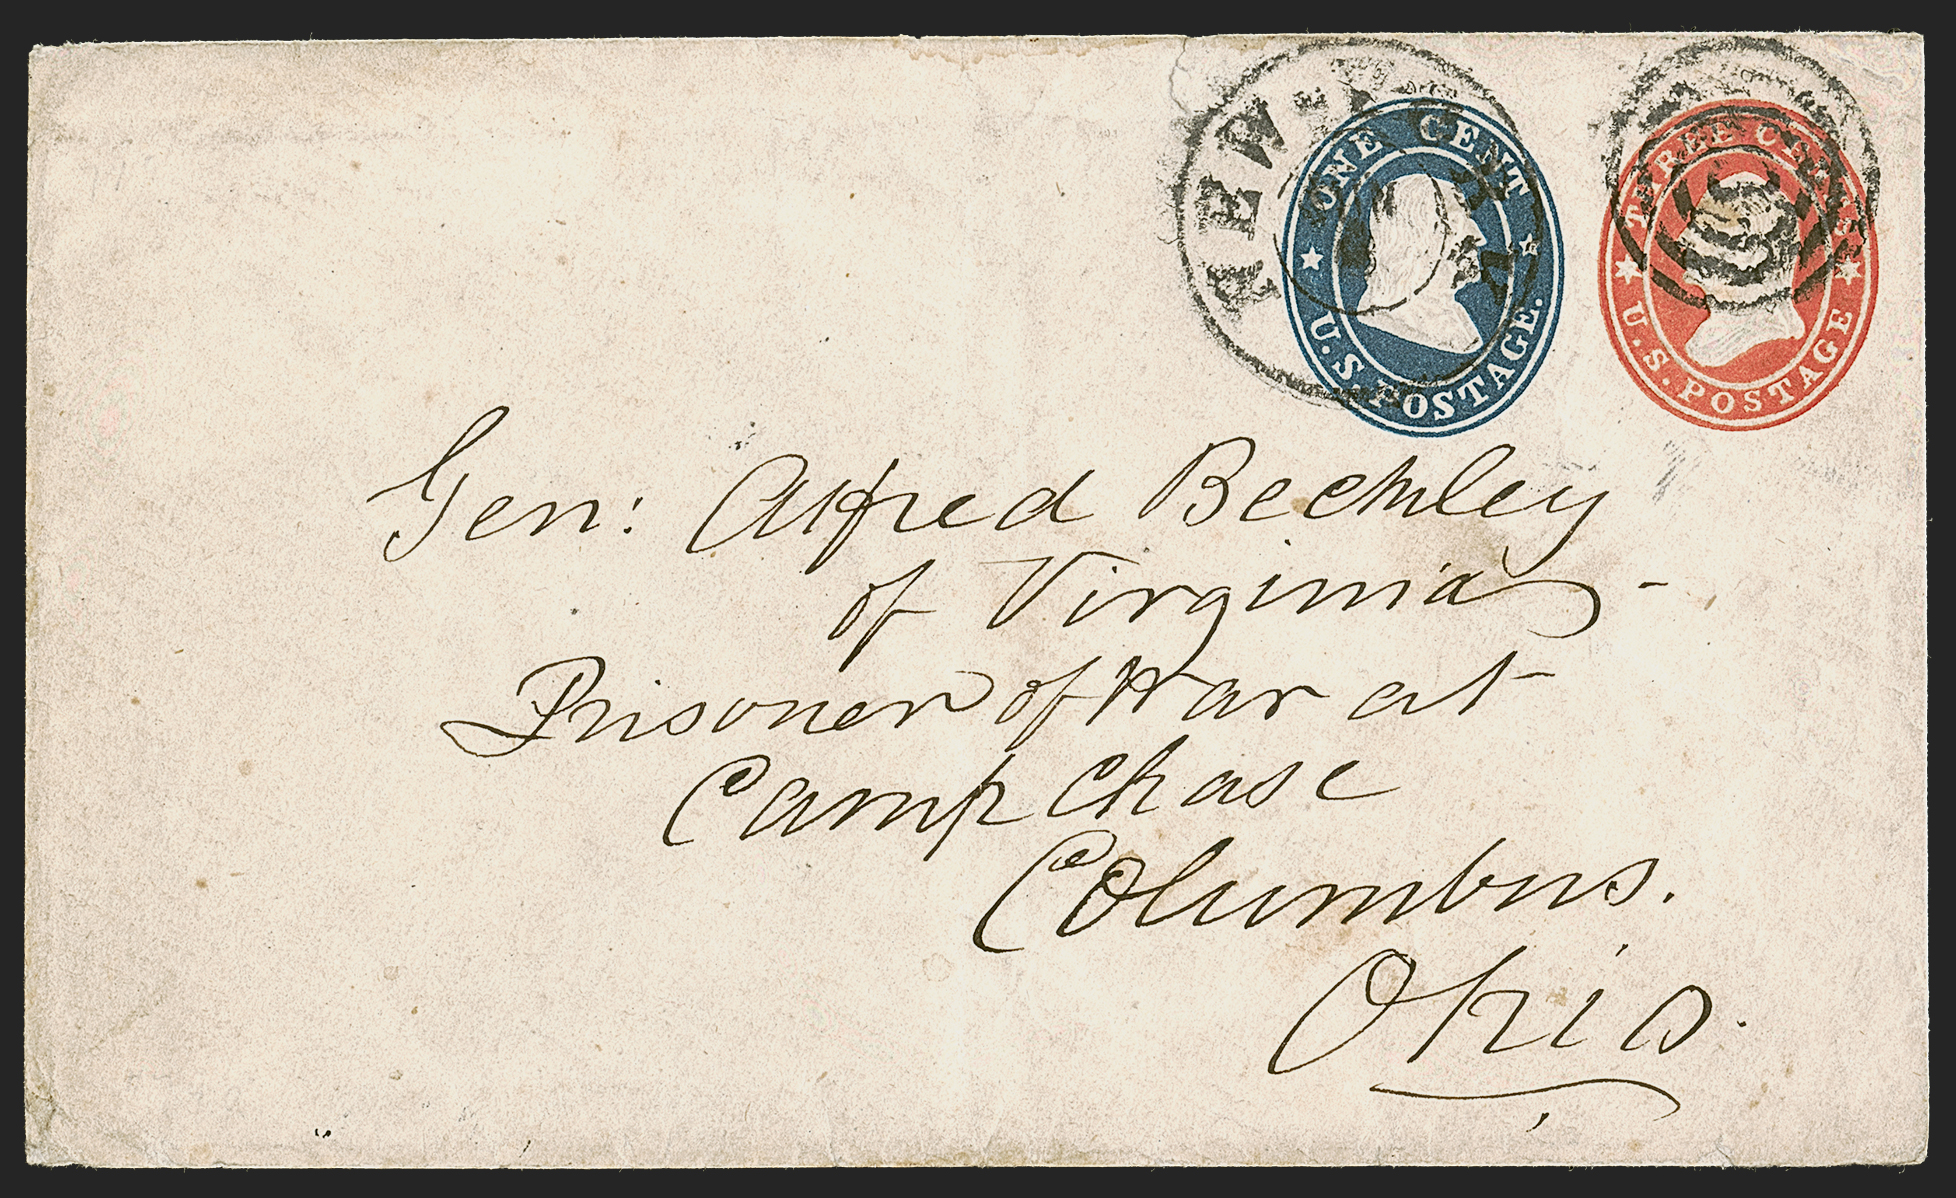 NEW-YORK
ONE CENT
U.S. POSTAGE.
THREE CENTS
U.S. POSTAGE
Gen: Alfred Beckley
of Virginia -
Prisoner of War at
Camp Chase
Columbus.
Ohio.